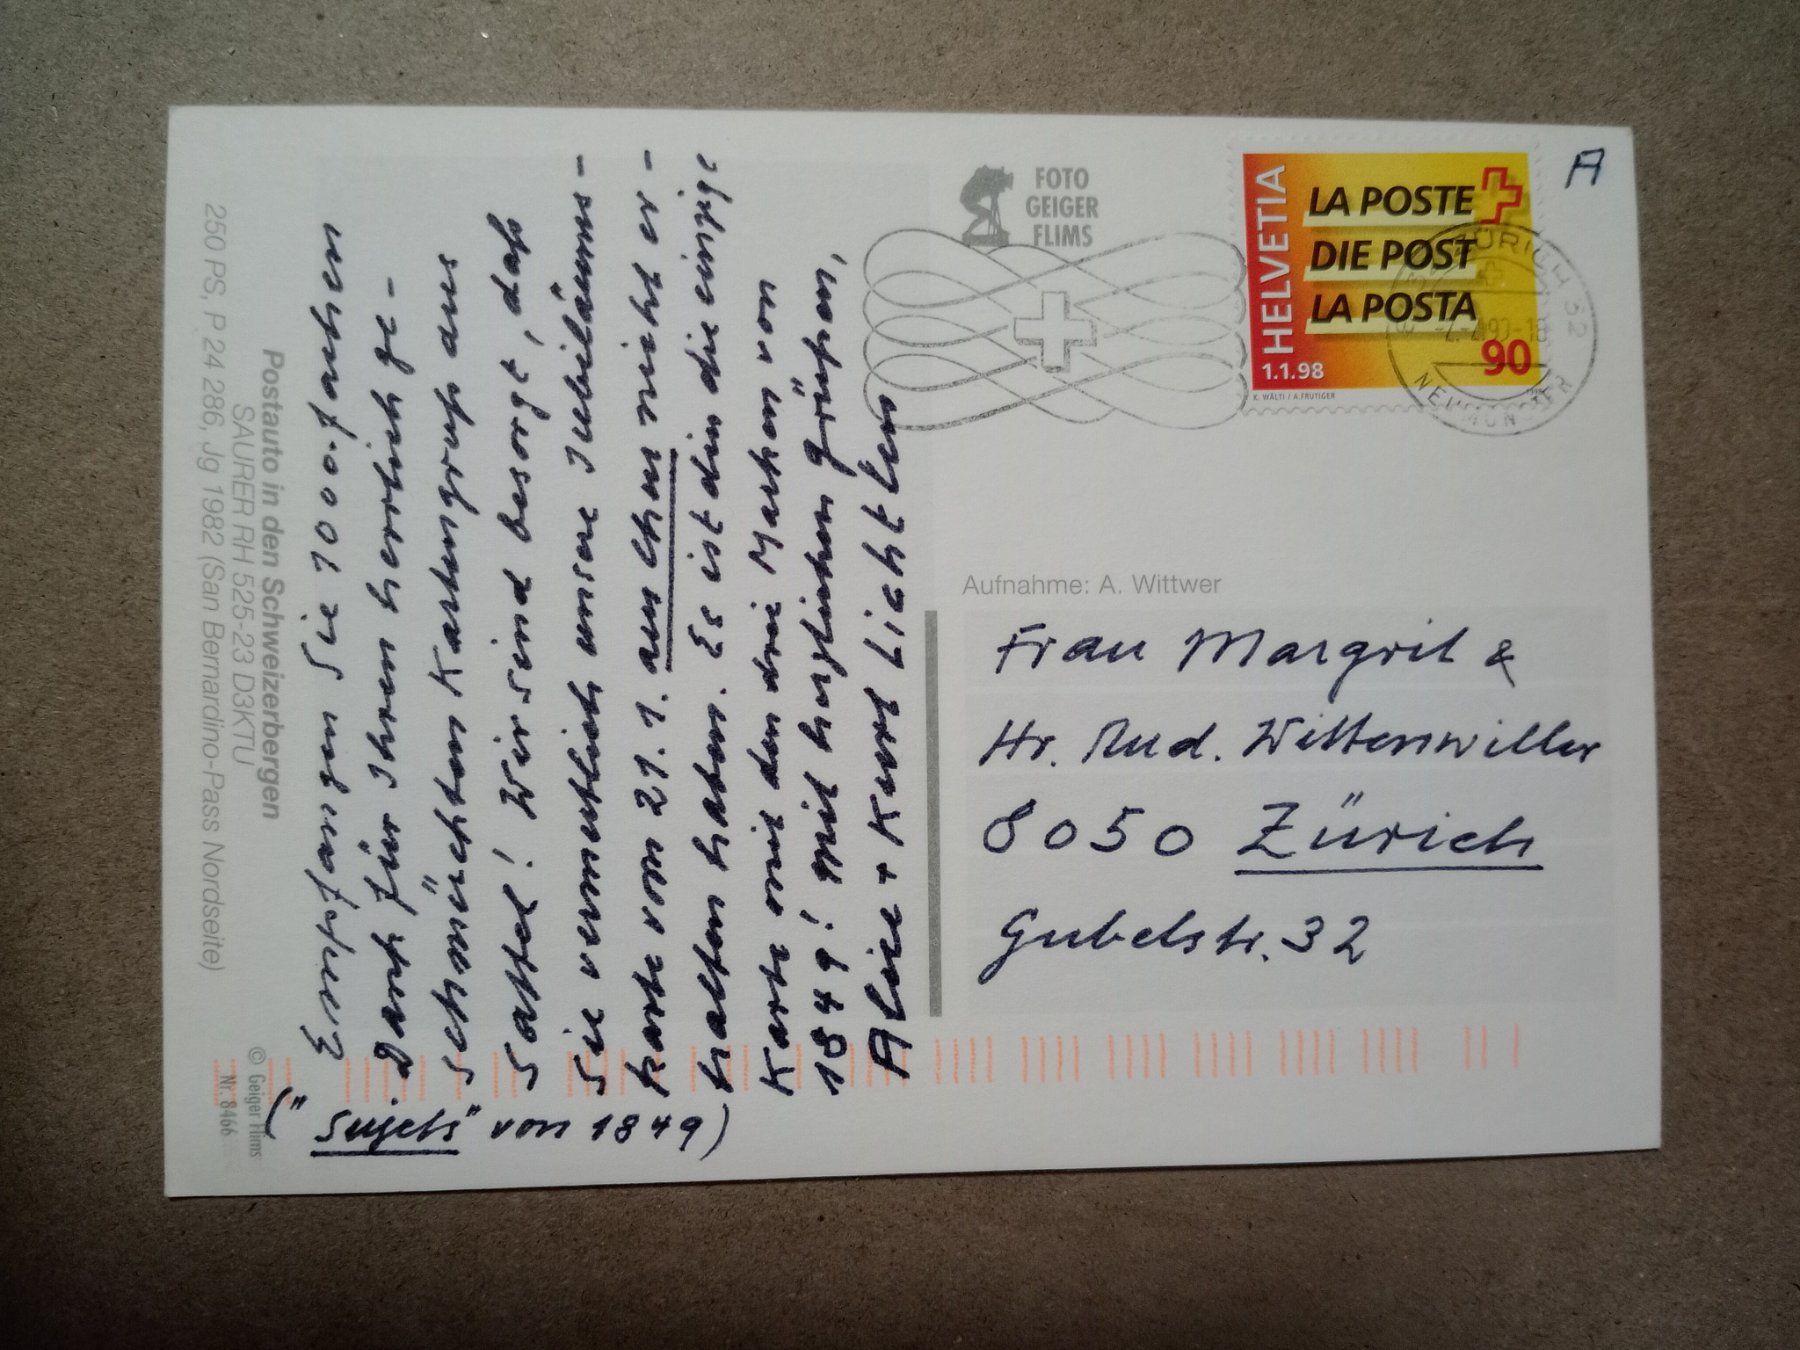 Empfangen Sie 1000-fachen
Dank für Ihren herrlich ge-
schmückten Kartengruss aus
Sattel! Wir sind besorgt, daß
Sie vermutlich unsere Jubiläums-
karte vom 21.1. auch nicht er-
halten haben. Es ist dies die einzige
Karte mit den drei Marken von
1849! Mit herzlichen Grüssen,
Alice + Kurt
("Sujets" von 1849)
Postauto in den Schweizerbergen
SAURER RH 525-23 D3KTU
250 PS, P 24 286, Jg 1982 (San Bernardino-Pass Nordseite)
© Geiger Flims
Nr. 8466
FOTO
GEIGER
FLIMS
HELVETIA
LA POSTE
DIE POST
LA POSTA
90
1.1.98
K. WÄLTI / A. FRUTIGER
A
ZÜRICH 32
NEUMÜNSTER
Aufnahme: A. Wittwer
Frau Margrit &
Hr. Rud. Wittenwiller
8050 Zürich
Gubelstr. 32